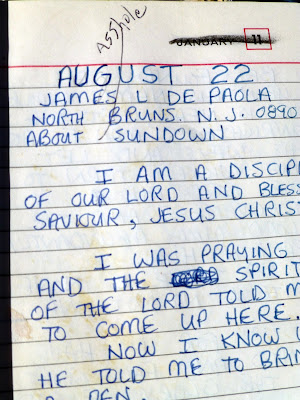 Asshole
JANUARY 11
AUGUST 22
JAMES L DE PAOLA
NORTH BRUNS. N.J. 0890
ABOUT SUNDOWN
I AM A DISCIP
OF OUR LORD AND BLESS
SAVIOUR, JESUS CHRIST
I WAS PRAYING
AND THE SPIRIT
OF THE LORD TOLD M
TO COME UP HERE.
NOW I KNOW
HE TOLD ME TO BRIN
A PEN.